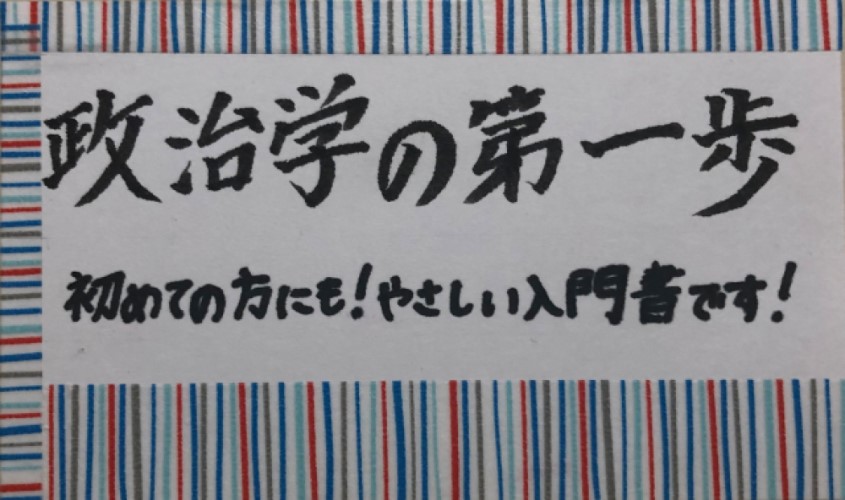 政治学の第一歩
初めての方にも!やさしい入門書です!